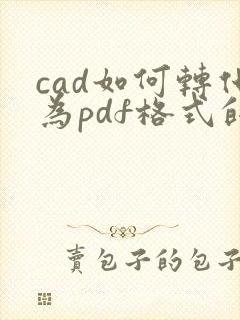 cad如何轉化
為pdf格式的
賣包子的包子